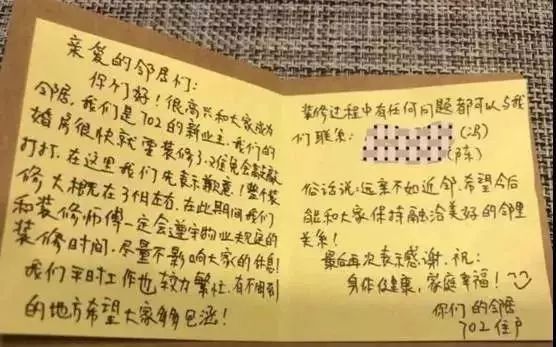 亲爱的邻居们:
你们好!很高兴和大家成为
邻居,我们是702的新业主,我们的
婚房很快就要装修了,难免会敲敲
打打,在这里我们先表示歉意!整个装
修大概在3个月左右,在此期间我们
和装修师傅一定会遵守物业规定的
装修时间,尽量不影响大家的休息!
我们平时工作也较为繁忙,有不周到
的地方希望大家多多包涵!
装修过程中有任何问题都可以与我
们联系:
(冯)
(陈)
俗话说:远亲不如近邻,希望今后
能和大家保持融洽美好的邻里
关系!
最后再次表示感谢,祝:
身体健康,家庭幸福!
你们的邻居
702住户